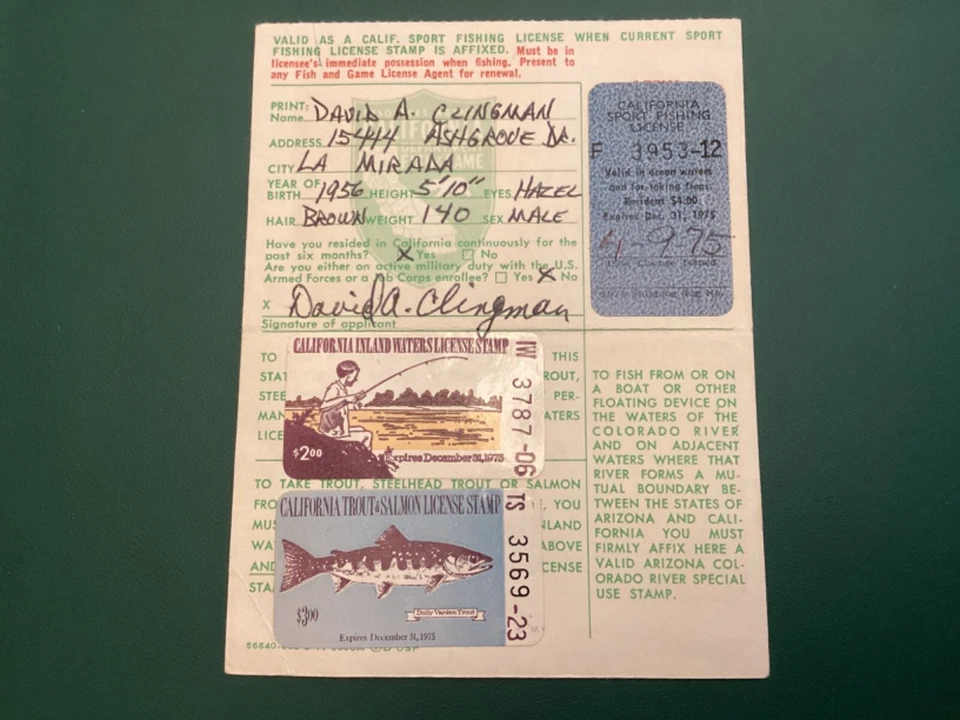 VALID AS A CALIF. SPORT FISHING LICENSE WHEN CURRENT SPORT
FISHING LICENSE STAMP IS AFFIXED. Must be in
licensee's immediate possession when fishing. Present to
any Fish and Game License Agent for renewal.
PRINT:
Name DAVID A. CLINGMAN
ADDRESS 15414 ASHGROVE DR.
CITY LA MIRADA
YEAR OF
BIRTH 1956 HEIGHT 5'10" EYES HAZEL
HAIR BROWN WEIGHT 140 SEX MALE
Have you resided in California continuously for the
past six months? X Yes No
Are you either on active military duty with the U.S.
Armed Forces or a Job Corps enrollee? Yes X No
X David A. Clingman
Signature of applicant
CALIFORNIA
SPORT FISHING
LICENSE
F 3953-12
Valid in ocean waters
and for taking frogs
Resident $4.00
Expires Dec. 31, 1975
4-9-75
CALIFORNIA INLAND WATERS LICENSE STAMP
$2.00
Expires December 31, 1975
IW 3787-06
TO THIS
STAT ROUT,
STEE PER-
MAN ATERS
LICE
TO TAKE TROUT, STEELHEAD TROUT OR SALMON
FRO E, YOU
MUS NLAND
WA ABOVE
AND CENSE
STA
CALIFORNIA TROUT & SALMON LICENSE STAMP
$3.00
Dolly Varden Trout
Expires December 31, 1975
TS 3569-23
TO FISH FROM OR ON
A BOAT OR OTHER
FLOATING DEVICE ON
THE WATERS OF THE
COLORADO RIVER
AND ON ADJACENT
WATERS WHERE THAT
RIVER FORMS A MU-
TUAL BOUNDARY BE-
TWEEN THE STATES OF
ARIZONA AND CALI-
FORNIA YOU MUST
FIRMLY AFFIX HERE A
VALID ARIZONA COL-
ORADO RIVER SPECIAL
USE STAMP.